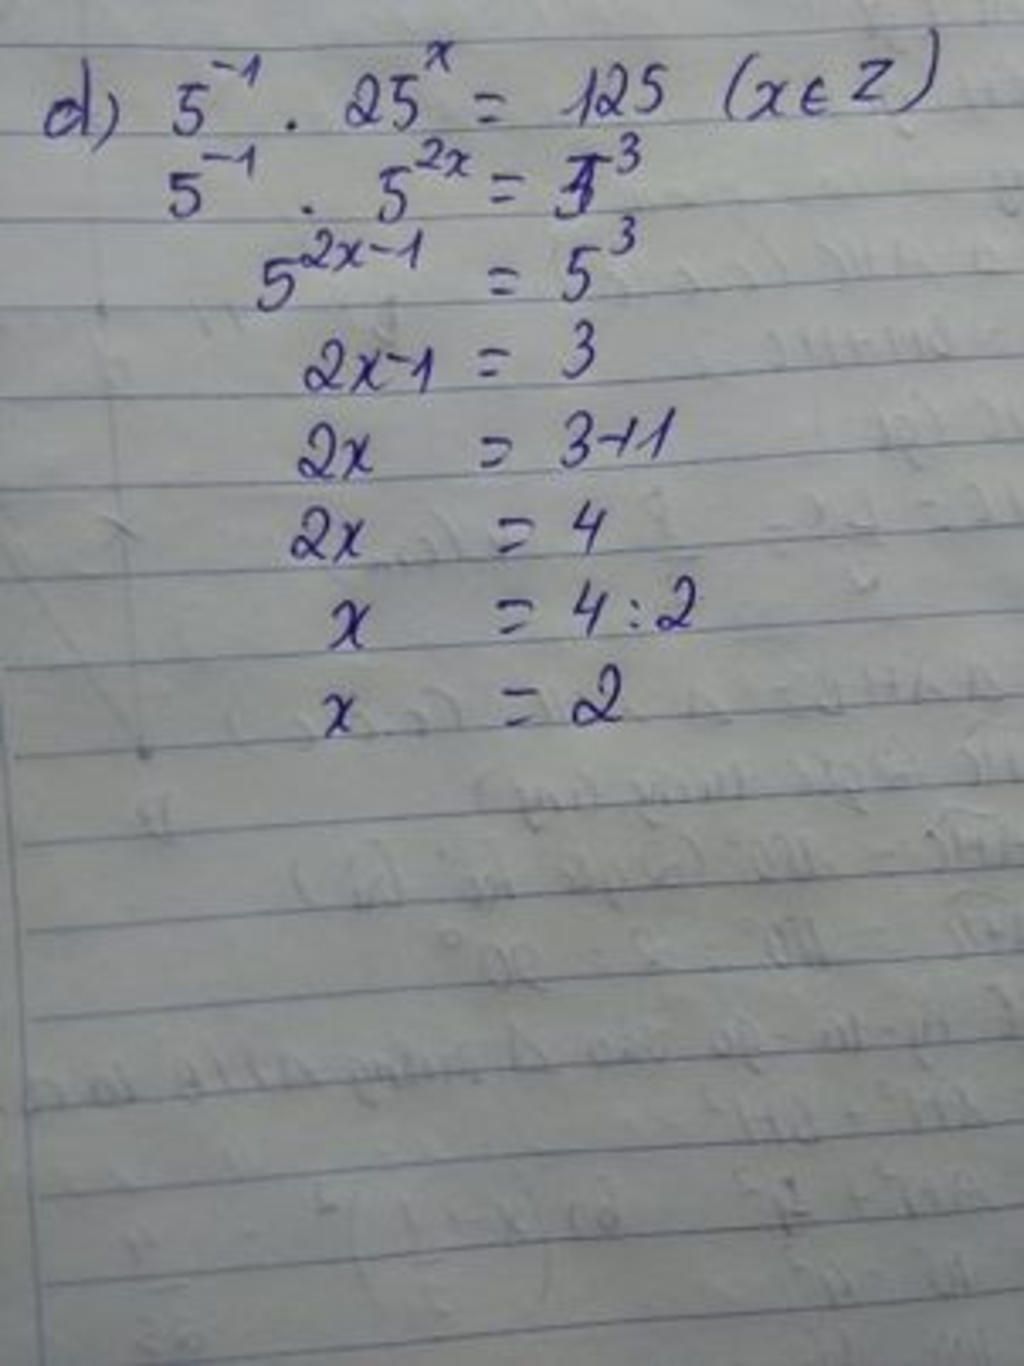 d) 5⁻¹ . 25ˣ = 125 (x ∈ Z)
5⁻¹ . 5²ˣ = 5³
5²ˣ⁻¹ = 5³
2x-1 = 3
2x = 3+1
2x = 4
x = 4:2
x = 2